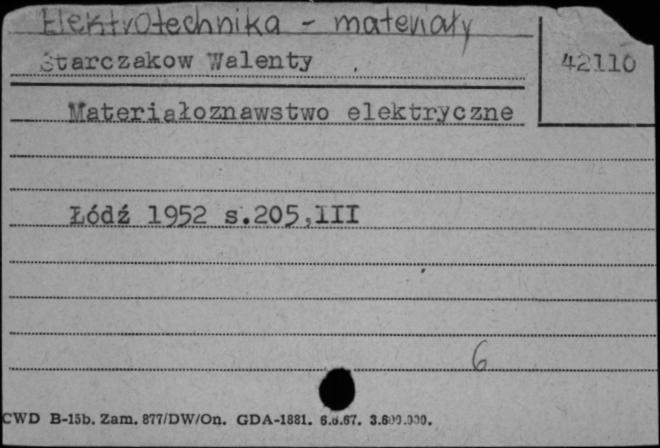 Elektrotechnika - materiały
Starczakow Walenty
42110
Materiałoznawstwo elektryczne
Łódź 1952 s.205,III
6
CWD B-15b. Zam. 877/DW/On. GDA-1881. 6.6.67. 3.600.000.